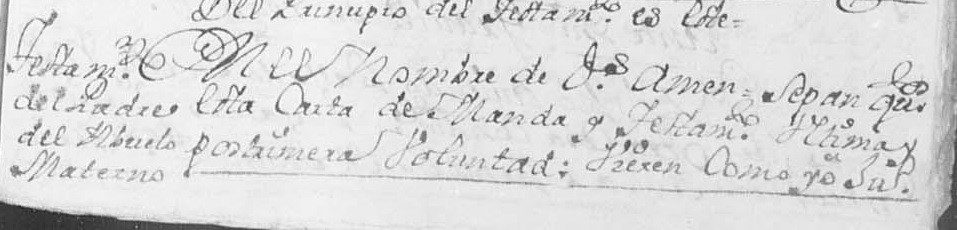 Del Prinsipio del Testam.to es este=
Testam.to En El Nombre de D.s Amen= Sepan q.s
del Padre Esta Carta de Manda y Testam.to Ultima y
del Abuelo postrimera Voluntad; Vieren Como yo Ju.o
Materno